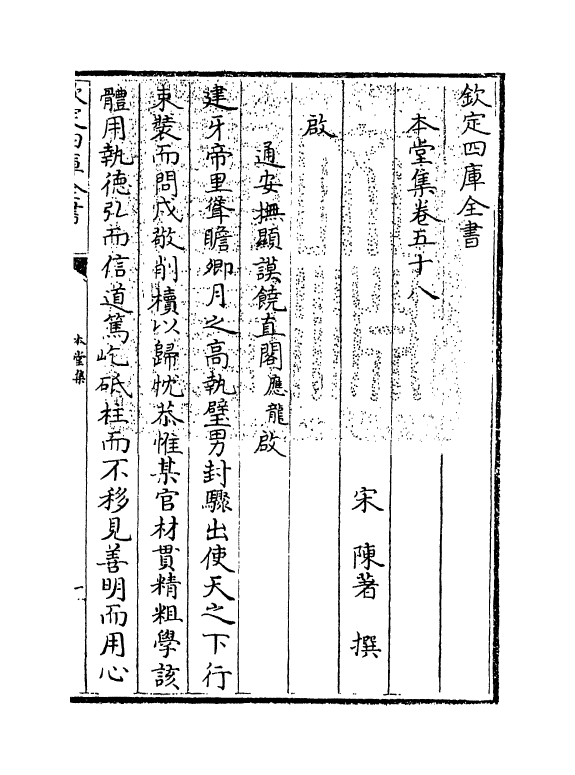 欽定四庫全書
本堂集卷五十八
宋 陳著 撰
啟
通安撫顯謨饒直閣應龍啟
建牙帝里聳瞻卿月之高執璧男封驟出使天之下行
束裝而問戍敬削牘以歸忱恭惟某官材貫精粗學該
體用執徳弘而信道篤屹砥柱而不移見善明而用心
欽定四庫全書
本堂集
一